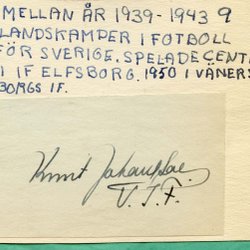 MELLAN ÅR 1939-1943 9
LANDSKAMPER I FOTBOLL
FÖR SVERIGE. SPELADE CENT
I IF ELFSBORG. 1950 I VÄNERS
BORGS IF.
Knut Johansson
V.I.F.